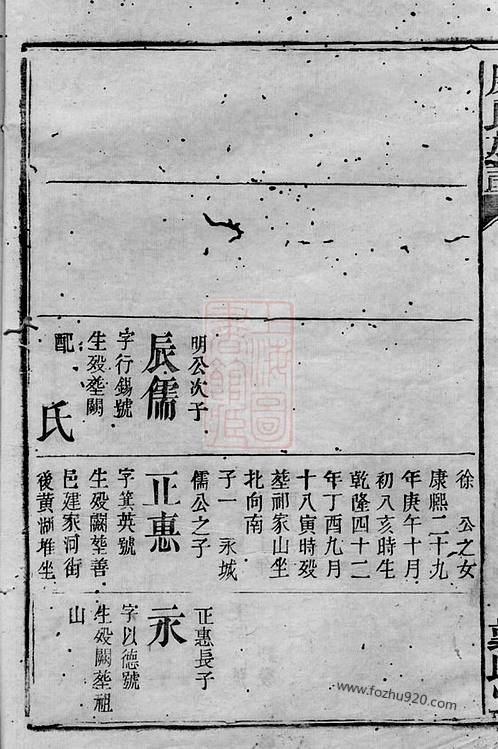 明公次子
辰儒
字行錫號
生殁塟闕
配　氏
徐　公之女
康熙二十九
年庚午十月
初八亥時生
乾隆四十二
年丁酉九月
十八寅時殁
塟祁家山坐
北向南
子一　永城
儒公之子
正惠
字箕英號
生殁闕塟善
邑建家河街
後黃湖堆坐
正惠長子
永
字以德號
生殁闕塟祖
山
www.fozhu920.com